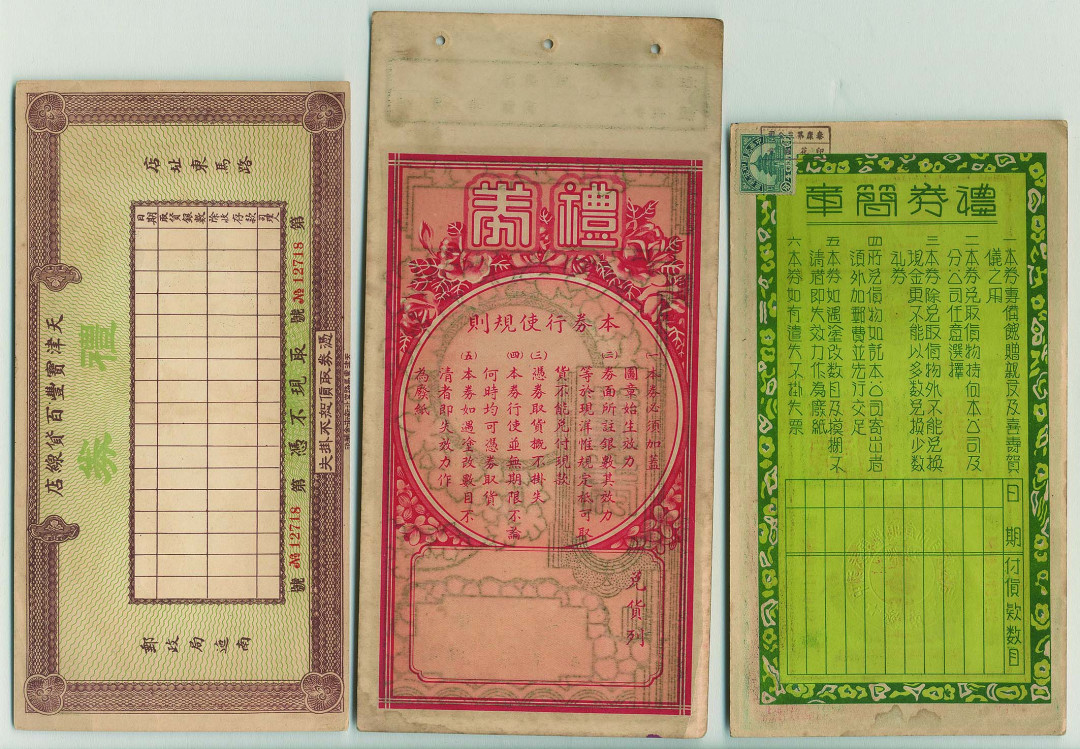 店址東馬路
天津寶豐百貨線店
禮券
日期
取貨
銀數
除收
存款
第 № 12718 號
取現不憑
第 № 12718 號
郵政局迤南
禮券
本券行使規則
(一)本券必須加蓋
圖章始生效力
(二)券面所註銀數其效力
等於現洋惟規定祇可取
貨不能兌付現款
(三)憑券取貨概不掛失
(四)本券行使並無期限不論
何時均可憑券取貨
(五)本券如遇塗改數目不
清者即失效力作
為廢紙
兌貨列
禮券簡章
一本券專備餽贈親友及喜壽賀
儀之用
二本券兌取貨物持向本公司及
分公司任意選擇
三本券除兌取貨物外不能兌換
現金更不能以多數兌換少數
礼券
四所兌貨物如託本公司寄出者
須外加郵費並先行交足
五本券如遇塗改數目及模糊不
清者即失效力作為廢紙
六本券如有遺失不掛失票
日期
付貨款数目